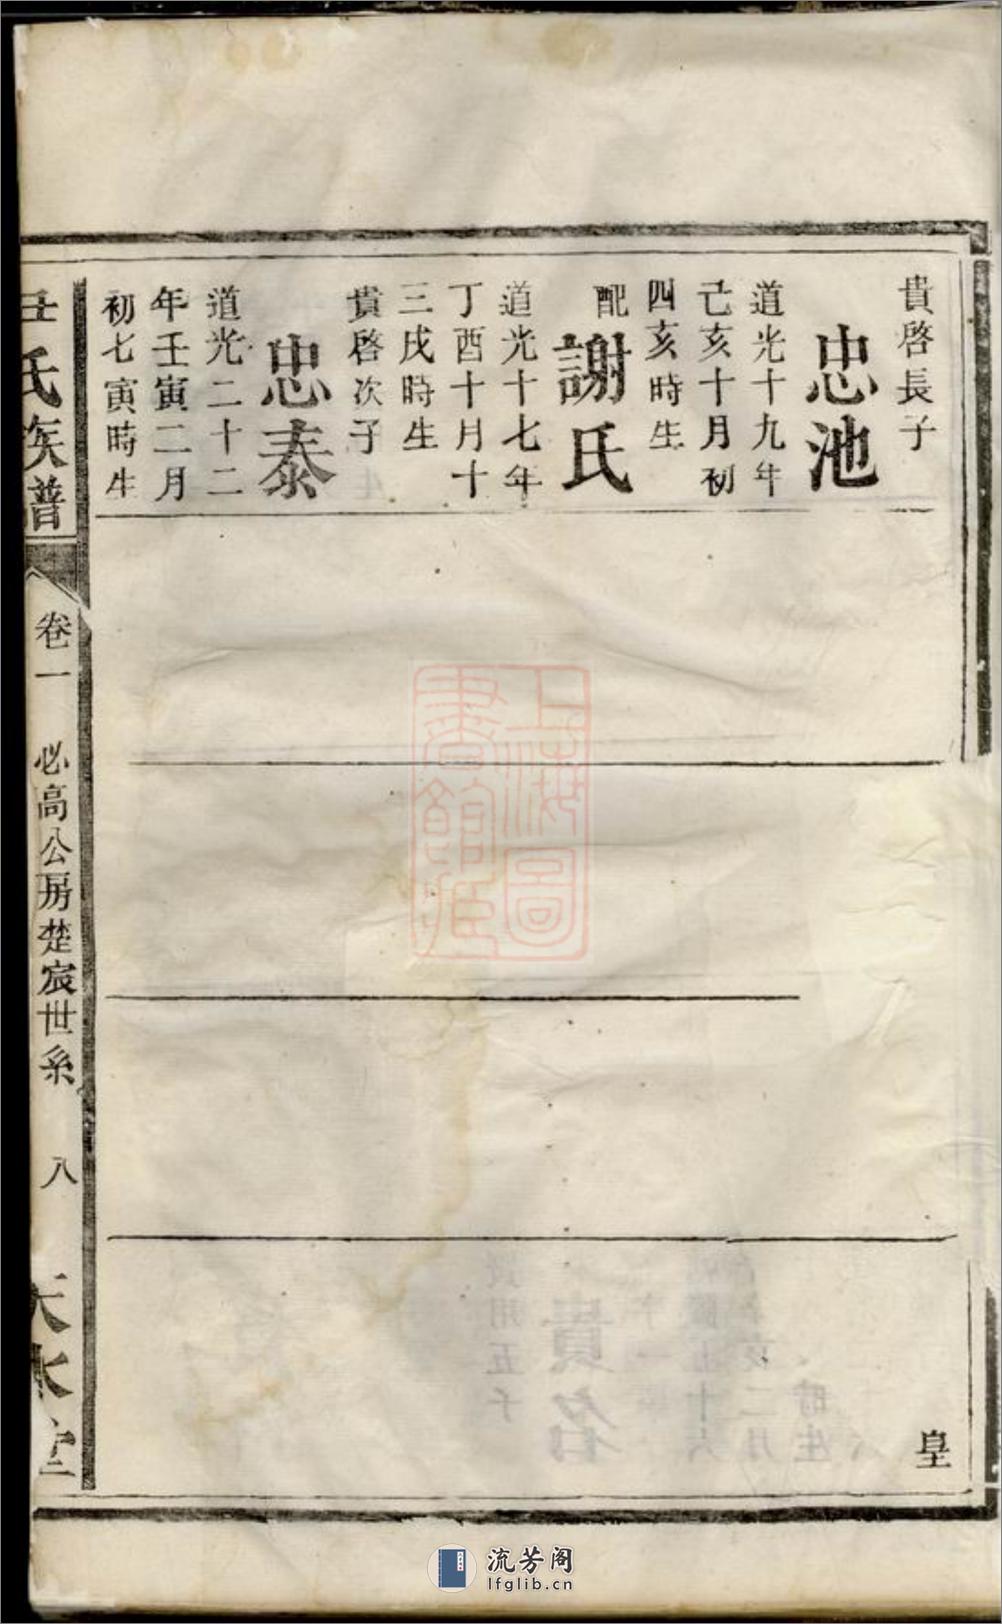 貴啓長子
忠池
道光十九年
己亥十月初
四亥時生
配
謝氏
道光十七年
丁酉十月十
三戌時生
貴啓次子
忠泰
道光二十二
年壬寅二月
初七寅時生
皇
氏族譜
卷一
必高公房楚宸世系
八
天水堂
上海圖
書館藏
流芳阁
lfglib.cn